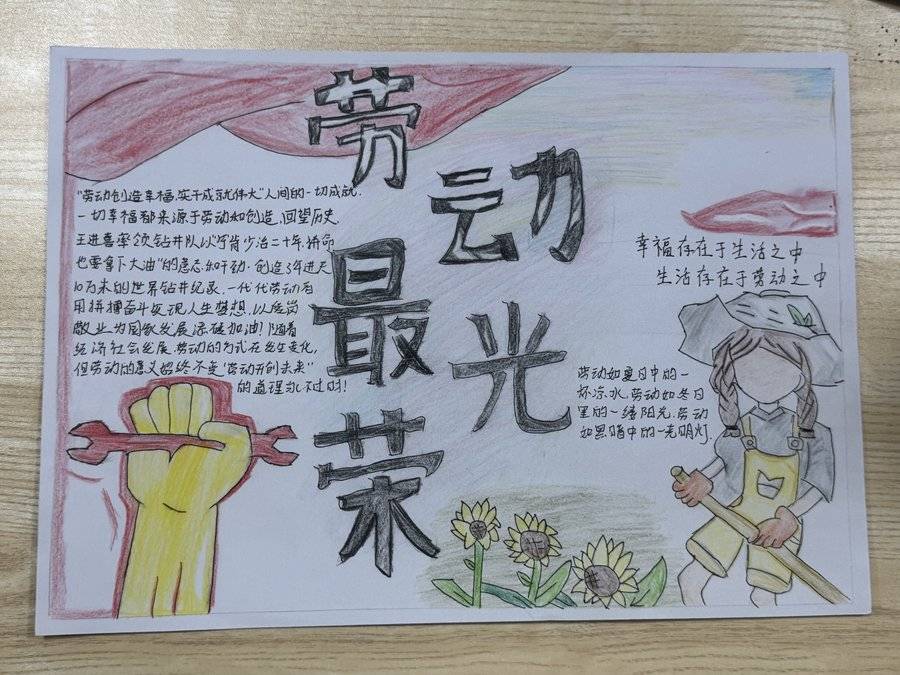 劳动最光荣
"劳动创造幸福,实干成就伟大"人间的一切成就.
一切幸福都来源于劳动和创造,回望历史,
王进喜率领钻井队以"宁肯少活二十年,拚命
也要拿下大油"的意志和干劲.创造了年进尺
10万米的世界钻井纪录.一代代劳动者
用拼搏奋斗实现人生梦想,以爱岗
敬业为国家发展添砖加油!随着
经济社会发展,劳动的方式在发生变化,
但劳动的意义始终不变"劳动开创未来"
的道理永不过时!
幸福存在于生活之中
生活存在于劳动之中
劳动如夏日中的一
杯凉水,劳动如冬日
里的一缕阳光.劳动
如黑暗中的一光明灯.